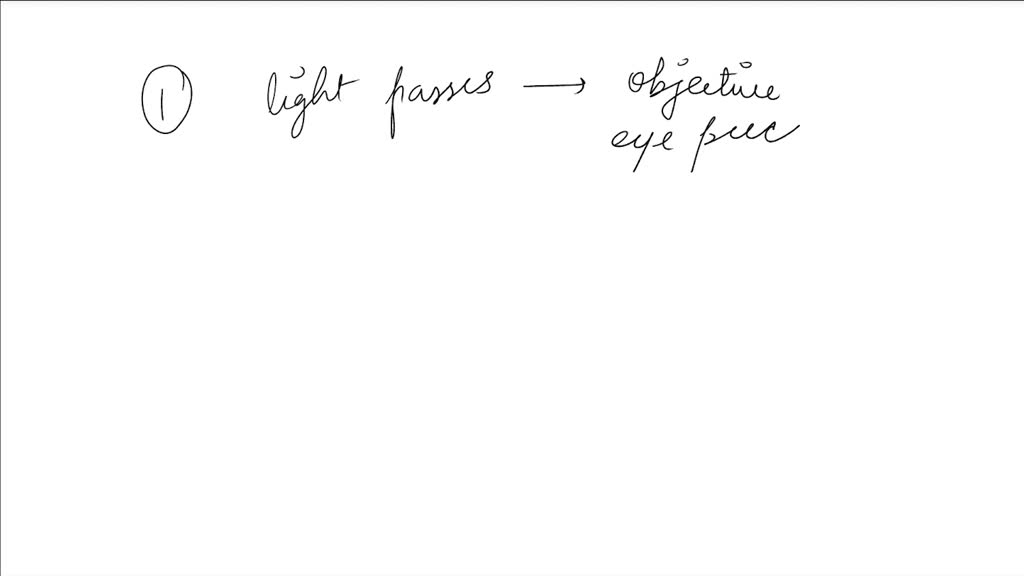 ① light passes → objective
eye piece